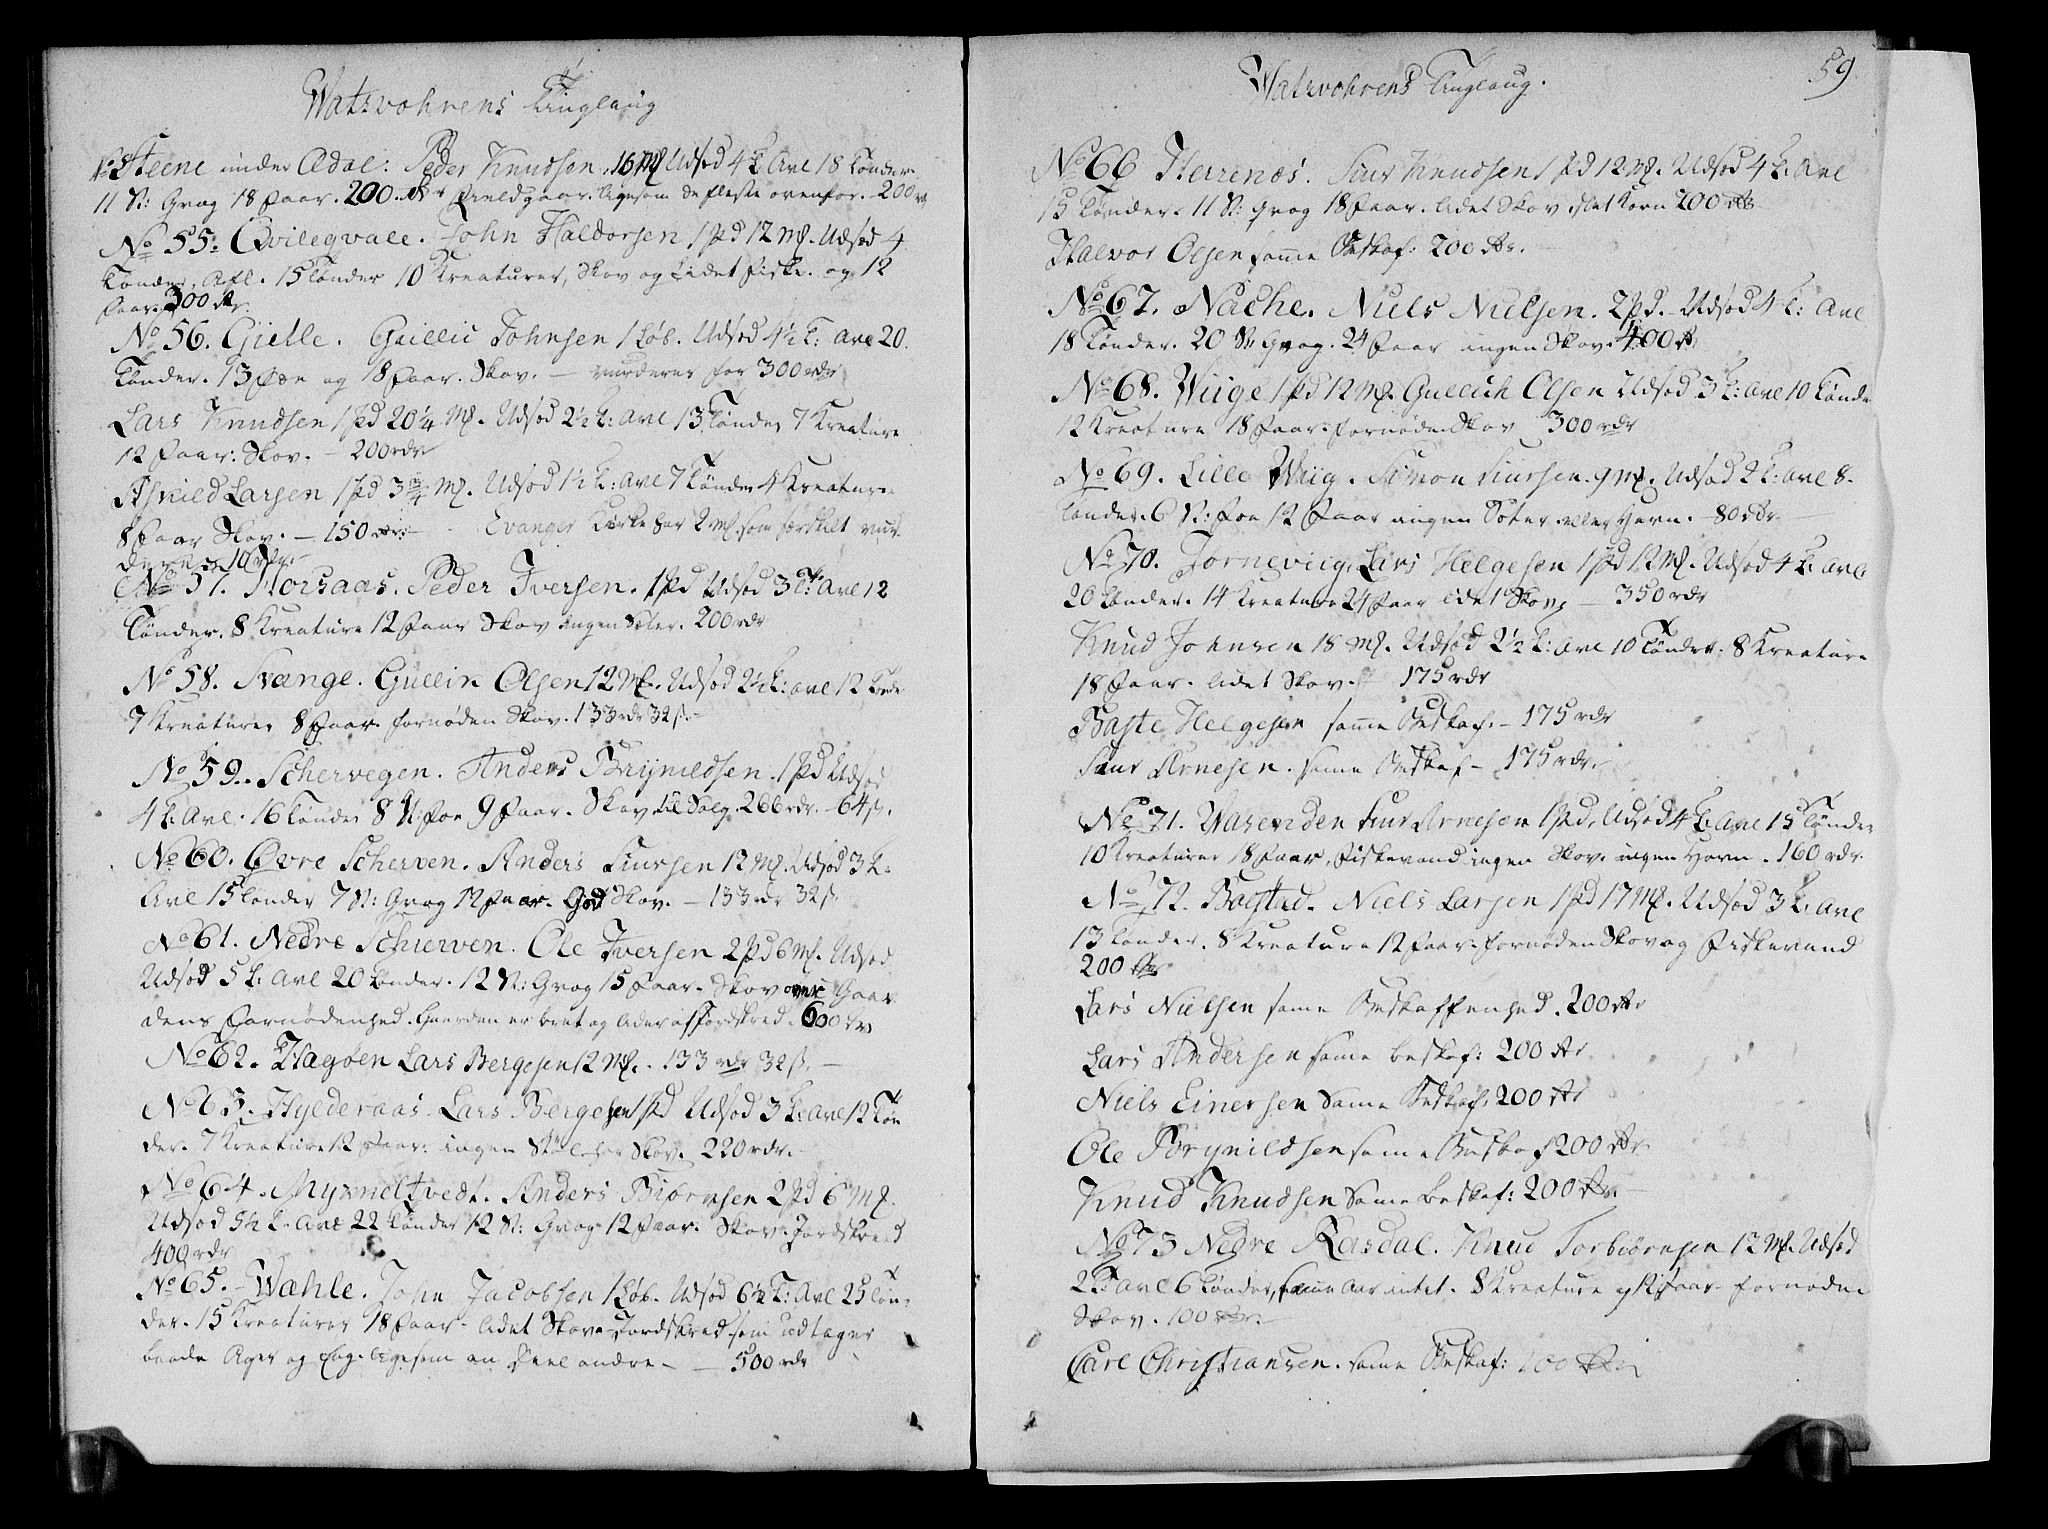 Watzvohrens Tinglaug
Steene under Ødal: Peder Knudsen. 16 Mk Udsæd 4 t: Avl 18 tønder
11 St: Qvæg 18 Faar. 200 rdr Fieldgaar. ligesom de fleste ovenfor. 200 rdr
No 55: Qvilegvale. John Haldorsen 1 Pd 12 Mk. Udsæd 4
Tønder, Afl. 15 tønder 10 Kreaturer, Skov og Lidet Fiske. og 12
Faar. 300 rdr.
No 56. Gielle. Guillic Johnsen 1 Løb. Udsæd 4½ t: Avl 20.
Tønder. 13 Føe og 18 Faar. Skov. — vurderes for 300 rdr
Lars Knudsen 1 Pd 20¼ Mk. Udsæd 2½ t: Avl 13 Tønder 7 Kreature
12 Faar: Skov. — 200 rdr
Larsen 1 Pd 3 Mk. Udsæd 1½ t: Avl 7 Tønder 4 Kreature
8 Faar Skov. — 150 rdr. — Evanger Kirke har 2 Mk som særskilt vur-
deres 10 rdr.
No 57. Horsaas. Peder Iversen. 1 Pd Udsæd 3 t: Avl 12
Tønder. 8 Kreature 12 Faar Skov ingen Sæter. 200 rdr
No 58. Svange. Gullin Olsen 12 Mk. Udsæd 2½ t: avl 12 tønder
7 Kreaturer 8 Faar. fornøden Skov. 133 rdr 32 s.—
No 59. Schervegen. Anders Brynildsen. 1 Pd Udsæd
4 t: Avl. 16 tønder 8 St: Føe 9 Faar. Skov til Salg. 266 rdr. 64 s.
No 60. Øvre Scherven. Anders Siursen 12 Mk. Udsæd 3 t:
Avl 15 tønder 7 St: Qvæg 12 Faar. God Skov. — 133 rdr 32 s
No 61. Nedre Schierven. Ole Iversen 2 Pd 6 Mk. Udsæd
Udsæd 5 t: Avl 20 tønder. 12 St: Qvæg 15 Faar. Skov over Gaar
dens Fornødenhed. Gaarden er brat og lider af Jordskred. 600 rdr
No 62. Hagøen Lars Bergesen 12 Mk. 133 rdr 32 s. —
No 63. Hylderaas. Lars Bergesen 1 Pd Udsæd 3 t: Avl 12 Tøn
der. 7 Kreature 12 Faar: ingen Støl. har Skov. 220 rdr.
No 64. Myrmeltvedt. Anders Biørnsen 2 Pd 6 Mk.
Udsæd 5½ t. Avl 22 Tønder 12 St: Qvæg 12 Faar. Skov. Jordskreed
400 rdr
No 65. Wahle. John Jacobsen 1 Løb. Udsæd 6½ t: Avl 25 Tøn-
der. 15 Kreaturer 18 Faar. lidet Skov. Jordskred som udtager
baade Ager og Eng. ligesom en Deel andre. — 500 rdr
59
Watzvohrens Tinglaug.
No 66 Herrenæs. Siur Knudsen 1 Pd 12 Mk. Udsæd 4 t: Avl
15 tønder. 11 St: Qvæg 18 Faar. lidet Skov slet Korn 200 rdr
Halvor Olsen samme Beskaf: 200 rdr.
No 67. Nache. Niels Nielsen. 2 Pd. Udsæd 4 t: Avl
18 Tønder. 20 St: Qvæg. 24 Faar ingen Skov. 400 rdr
No 68. Wiige 1 Pd 12 Mk. Gullich Olsen Udsæd 3 t: avl 10 tønder
12 Kreature 18 Faar. fornøden Skov 300 rdr
No 69. Lille Wiig. Simon Siursen. 9 Mk. Udsæd 2 t: avl 8.
tønder. 6 St: Føe 12 Faar ingen Sæter eller Havn. — 80 rdr
No 70. Jorneviig. Lars Helgesen 1 Pd 12 Mk. Udsæd 4 t: Avl
20 tønder. 14 Kreature 24 Faar lidet Skov — 350 rdr
Knud Johnsen 18 Mk. Udsæd 2½ t: Avl 10 Tønder. 8 Kreature
18 Faar. lidet Skov. 175 rdr
Baste Helgesen samme Beskaf. — 175 rdr
Siur Arnesen. samme Beskaf — 175 rdr.
No 71. Wasenden Siur Arnesen 1 Pd. Udsæd 4 t: Avl 15 Tønder
10 Kreaturer 18 Faar, Fiskevand ingen Skov. ingen Havn. 160 rdr.
No 72. Bagstad. Niels Larsen 1 Pd 17 Mk. Udsæd 3 t: Avl
13 tønder. 8 Kreature 12 Faar. fornøden Skov og Fiskevand
200 rdr
Lars Nielsen samme Beskaffenhed. 200 rdr
Lars Andersen samme beskaf: 200 rdr
Niels Einersen Samme Beskaf: 200 rdr
Ole Brynildsen samme Beskaf 200 rdr
Knud Knudsen Samme beskaf: 200 rdr. —
No 73 Nedre Rasdal. Knud Torbiørnsen 12 Mk. Udsæd
2 t: avl 6 tønder, somme Aar intet. 8 Kreature 12 Faar. fornøden
Skov. 100 rdr. —
Carl Christiansen. samme Beskaf: 100 rdr